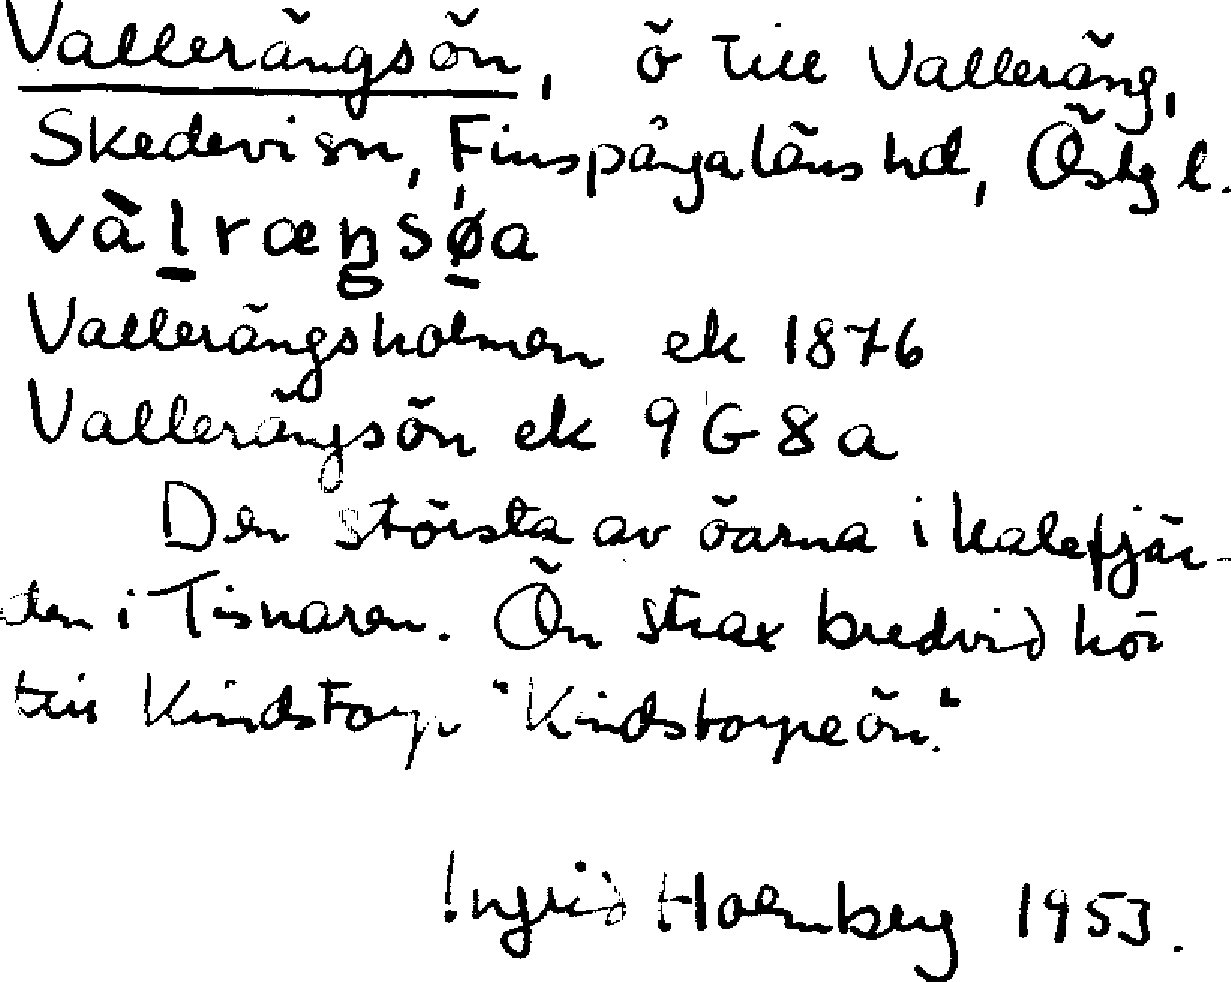 Vallerängsön, ö till Valleräng,
Skedevi sn, Finspångaläns hd, Östg l.
và̱lræŋsø̱a
Vallerängsholmen ek 1876
Vallerängsön ek 9G8a
Den största av öarna i Kalvfjär-
den i Tisnaren. Ön strax bredvid hör
till Kindstorp "Kindstorpeön."
Ingrid Holmberg 1953.